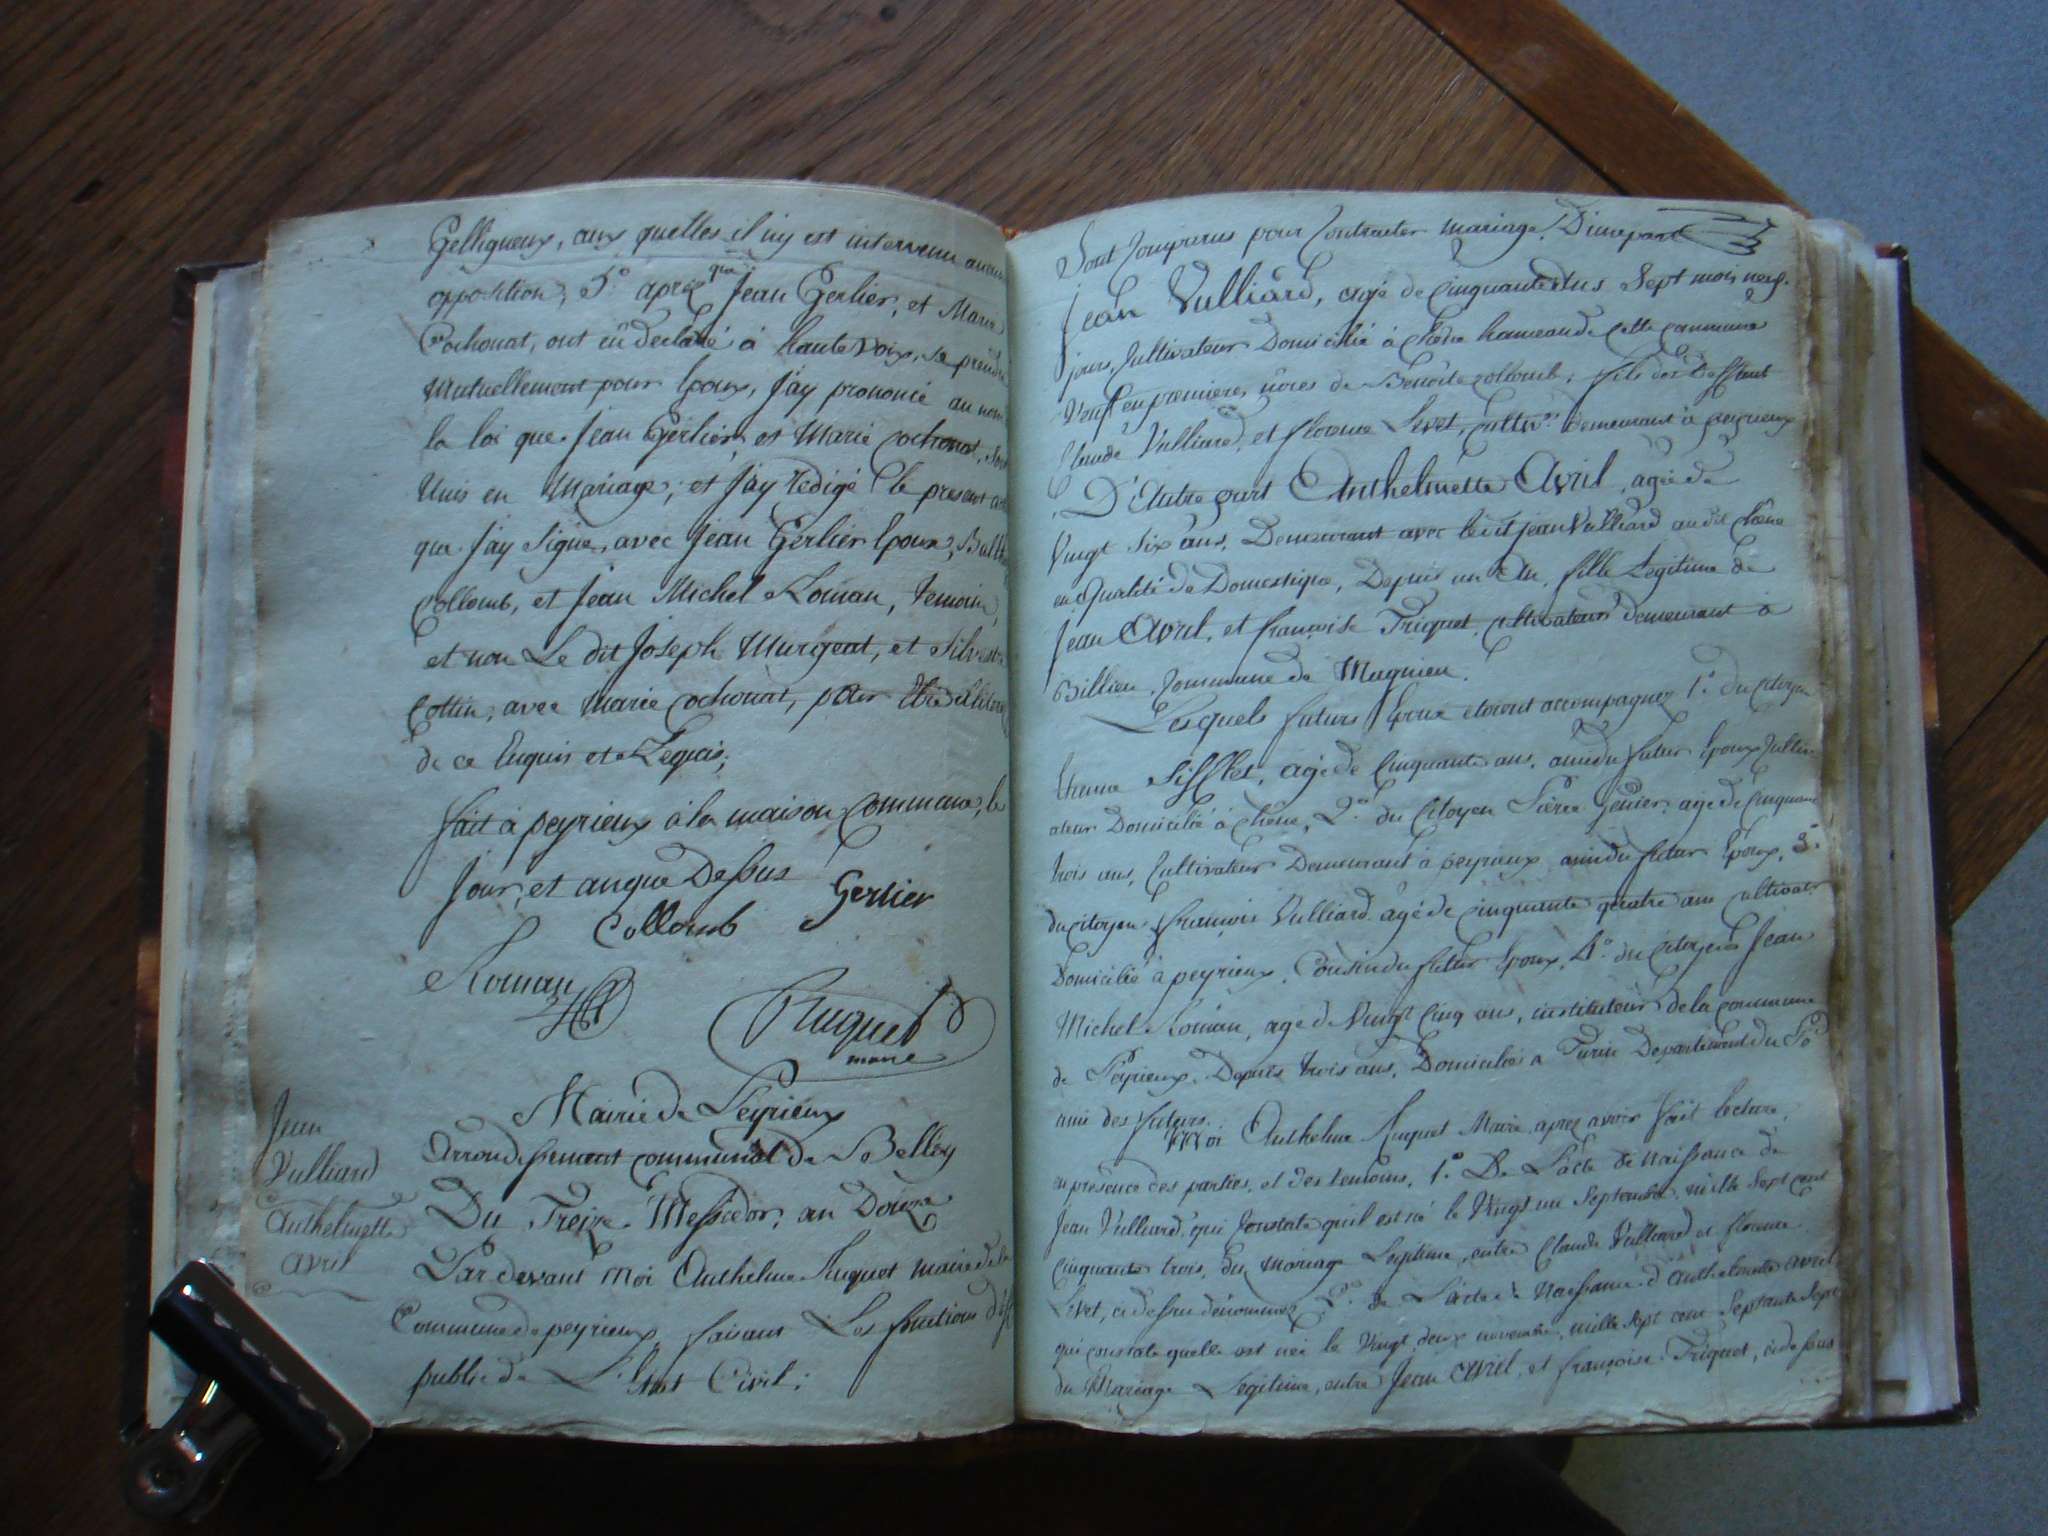 Gelligneux, aux quelles il n'y est intervenu aucune
opposition, 5° aprés que Jean Gerlier, et Marie
Cochonat, ont eû declaré à haute voix, se prendre
mutuellement pour Epoux, J'ay prononcé au nom
la loi que Jean Gerlier, et Marie Cochonat, sont
Unis en Mariage; et J'ay redigé le present acte
que J'ay signé, avec Jean Gerlier Epoux,
Collomb, et Jean Michel Roman, temoin,
et non Le dit Joseph Murgeat, et Silvestre
Cottin, avec Marie Cochonat, pour
de ce Enquis et Requis;
fait à peyrieux à la maison Commune, le
Jour, et an que Dessus
Collomb Gerlier
Roman
Ruquet
maire
Jean
Vulliard
Anthelmette
Avril
Mairie de Peyrieux
Arrondissement communal de Belley
Du Treize Messidor, an Douze
Par devant Moi Anthelme Ruquet maire de la
Commune de peyrieux, faisant Les fonctions d'off
public de L'Etat Civil;
Sont Comparus pour Contracter mariage, D'une part
Jean Vulliard, agé de Cinquante ans Sept mois neuf
jours, Cultivateur Domicilié à Chêne hameau de cette commune
Veuf en premiere nôces de Benoite Collomb, fils des Deffunts
Claude Vulliard, et florence Livet, Cultivr. demeurant à peyrieux
D'Autre part Anthelmette Avril, agée de
Vingt Six ans, Demeurant avec ledit jean Vulliard au dit Chêne
en Qualité de Domestique, Depuis un An, fille Legitime de
Jean Avril, et françoise Triquet, cultivateurs demeurant à
Billieu, Commune de Magnieu.
Lesquels futurs Epoux etoient accompagnez 1°. du Citoyen
Etienne Sifflet, agé de Cinquante ans, ami du futur Epoux Cultiv
ateur Domicilié à Chêne, 2°. du Citoyen Pierre Genier, agé de Cinquante
trois ans, Cultivateur Demeurant à peyrieux ami du futur Epoux, 3°.
du Citoyen françois Vulliard, agé de Cinquante quatre ans cultivatr
Domicilié à peyrieux, Cousin du futur Epoux, 4°. du Citoyen Jean
Michel Roman, agé de Vingt Cinq ans, instituteur de la commune
de Peyrieux, Depuis trois ans, Domicilié à Turin Departement du Pô
ami des futurs.
Moi Anthelme Ruquet Maire, aprez avoir fait lecture,
en présence des parties, et des temoins, 1°. De L'acte de Naissance de
Jean Vulliard, qui Constate qu'il est né le Vingt un Septembre mille Sept cent
Cinquante trois, du Mariage Legitime, entre Claude Vulliard et florence
Livet, ci dessus dénommez, 2°. De L'acte de Naissance d'Anthelmette Avril
qui constate quelle est née le Vingt deux novembre, mille Sept cent Septante Sept
du Mariage Legitime, entre Jean Avril, et françoise Triquet, ci dessus